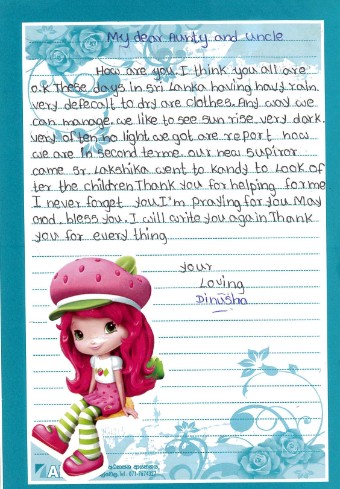 My dear Aunty and Uncle
How are you. I think you all are
o.k These days in Sri Lanka having havy rain
very defecalt to dry are clothes. Any way we
can manage. we like to see sun rise. very dark.
very of ten no light we got are report now
we are in second terme. our new supiror
came Sr. Lakshika went to kandy to Look af
ter the children Thank you for helping for me
I never forget you I'm praying for you May
God. bless you. I will write you again Thank
you for every thing
your
Loving
Dinusha